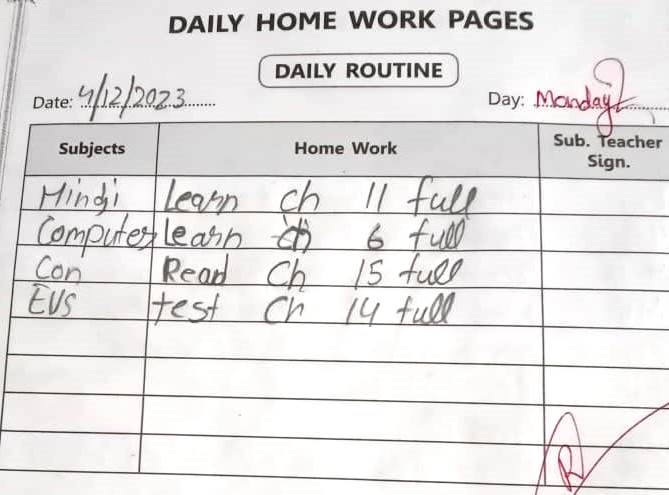 DAILY HOME WORK PAGES
DAILY ROUTINE
Date: 4/12/2023 Day: Monday
Subjects Home Work Sub. Teacher Sign.
Hindi Learn ch 11 full
Computer learn ch 6 full
Con Read Ch 15 full
EVS test Ch 14 full